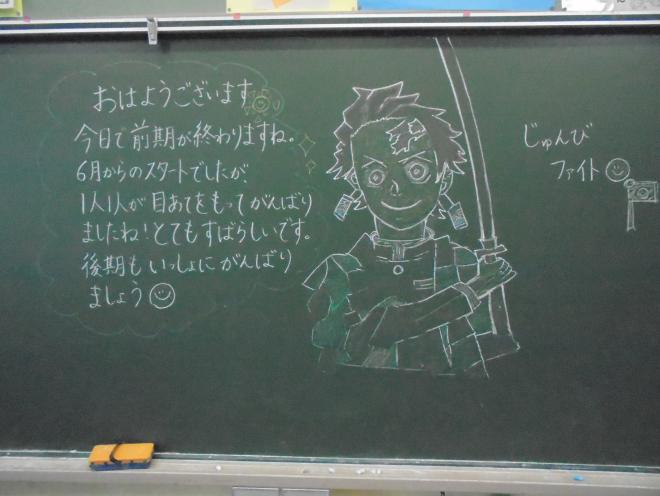 おはようございます
今日で前期が終わりますね。
6月からのスタートでしたが、
1人1人が目あてをもってがんばり
ましたね!とてもすばらしいです。
後期もいっしょにがんばり
ましょう
じゅんび
ファイト